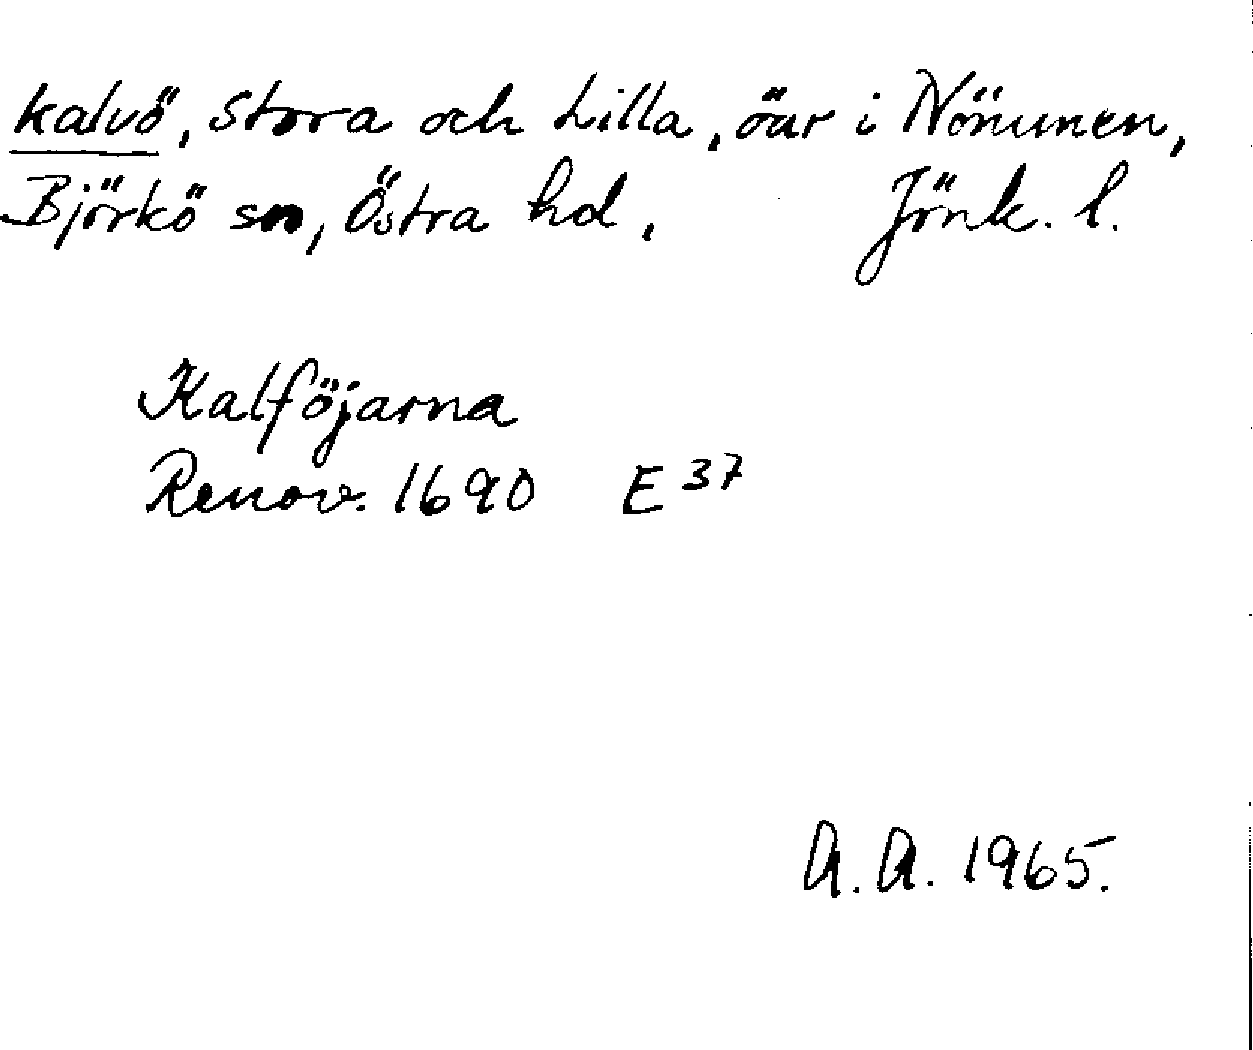 Kalvö, Stora och Lilla, öar i Nömmen,
Björkö sn, Östra hd, Jönk. l.
Kalföjarna
Renov. 1690 E 37
A. A. 1965.